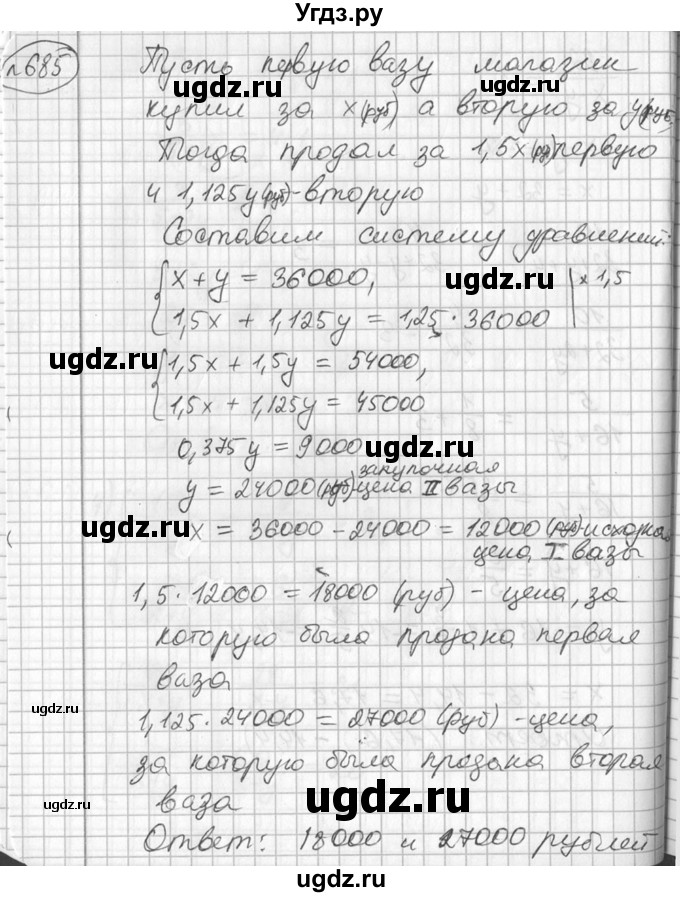 Угдз.ру
№685
Пусть первую вазу магазин
купил за x(руб) а вторую за y(руб)
Тогда продал за 1,5x(руб) первую
и 1,125y(руб)-вторую
Составим систему уравнений:
x+y = 36000, | ×1,5
1,5x + 1,125y = 1,25·36000
1,5x + 1,5y = 54000,
1,5x + 1,125y = 45000
0,375y = 9000
y = 24000(руб)-закупочная цена II вазы
x = 36000 - 24000 = 12000 (руб)-исходная
цена I вазы
1,5·12000 = 18000 (руб) - цена, за
которую была продана первая
ваза
1,125·24000 = 27000 (руб) - цена,
за которую была продана вторая
ваза
Ответ: 18000 и 27000 рублей
ugdz.ru
ugdz.ru
ugdz.ru
ugdz.ru
ugdz.ru
ugdz.ru
ugdz.ru
ugdz.ru
ugdz.ru
ugdz.ru
ugdz.ru
ugdz.ru
ugdz.ru